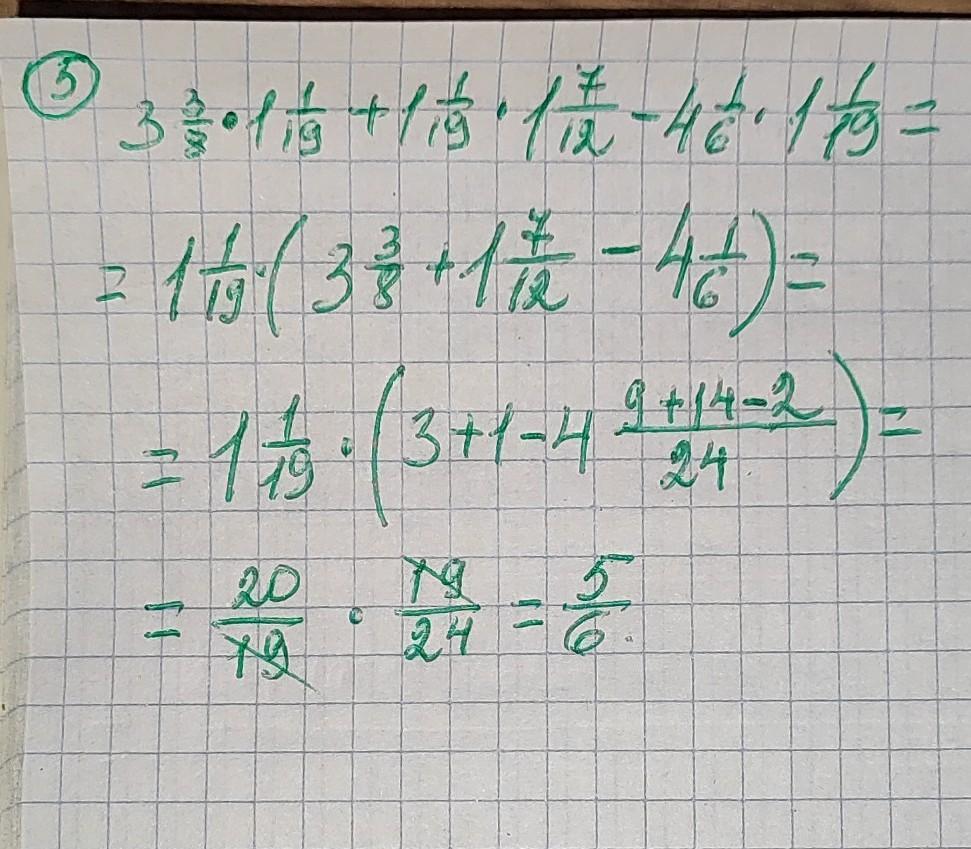 5
3 3/8 · 1 1/19 + 1 1/19 · 1 7/12 - 4 1/6 · 1 1/19 =
= 1 1/19 · (3 3/8 + 1 7/12 - 4 1/6) =
= 1 1/19 · (3+1-4 (9+14-2)/24) =
= 20/19 · 19/24 = 5/6.